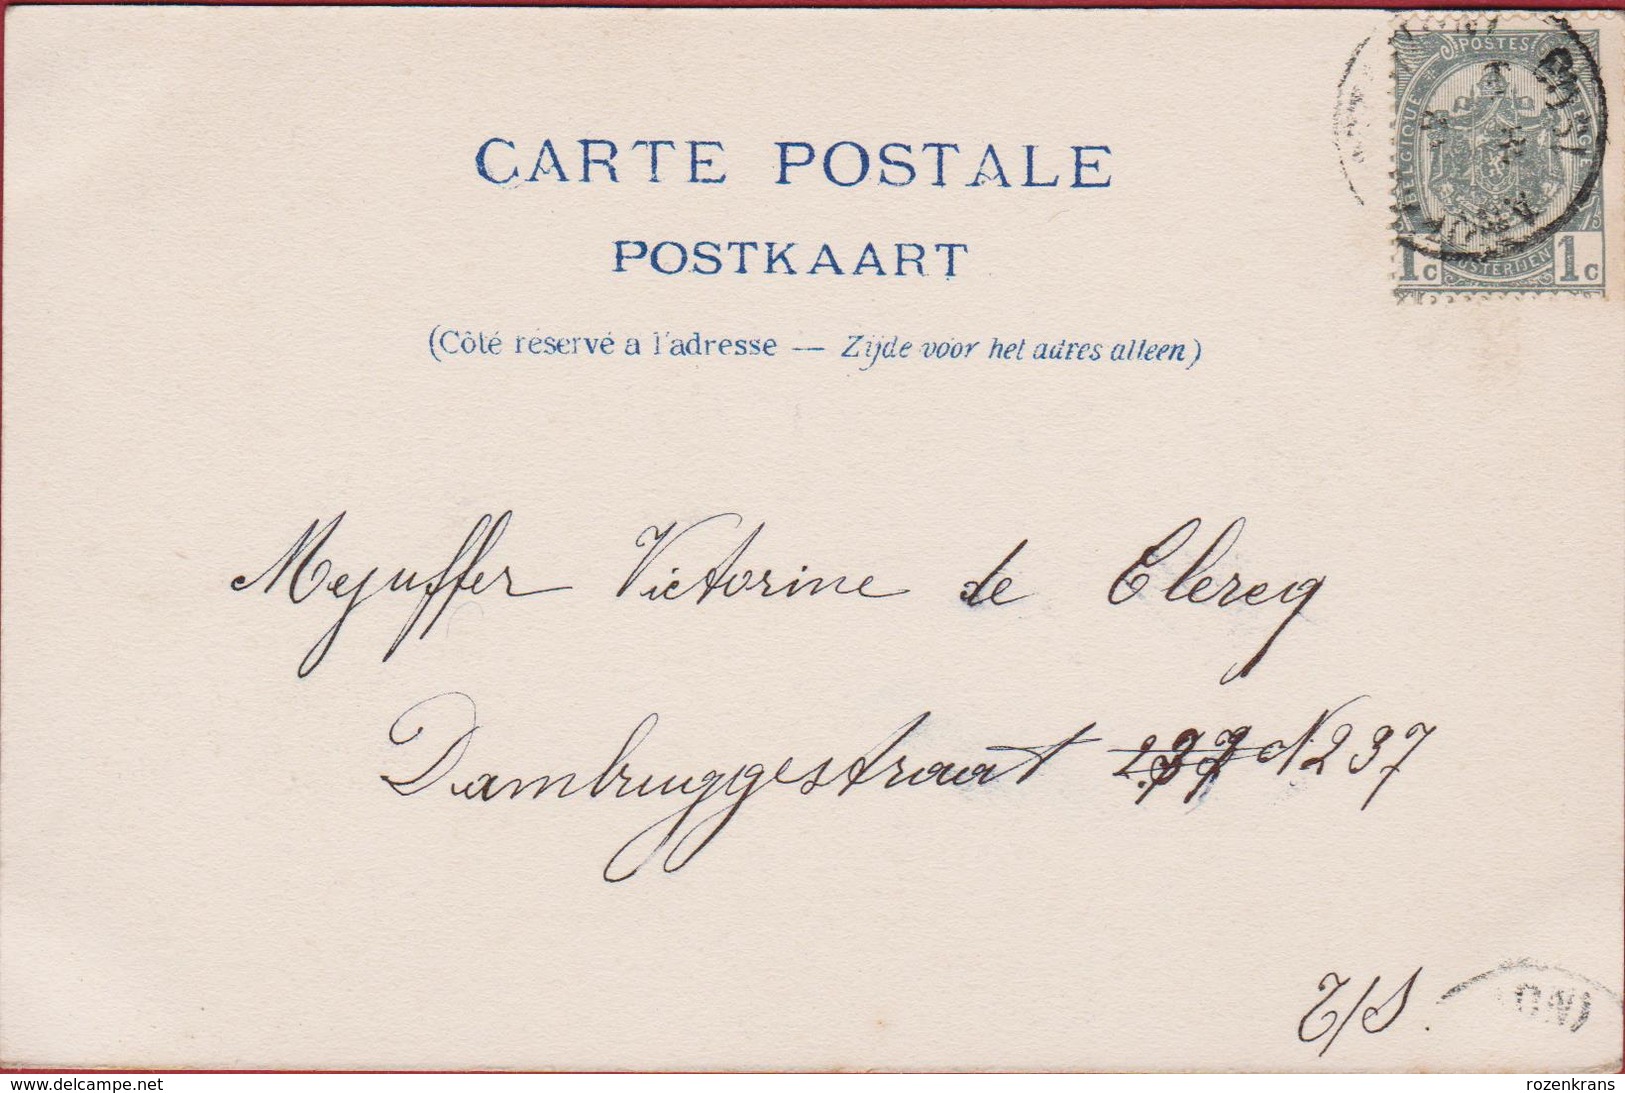 CARTE POSTALE
POSTKAART
(Côté réservé a l'adresse — Zijde voor het adres alleen)
POSTES
BELGIQUE
BELGIE
POSTERIJEN
1c 1c
Mejuffer Victorine de Clercq
Dambruggestraat N 237
E/S.
www.delcampe.net
rozenkrans